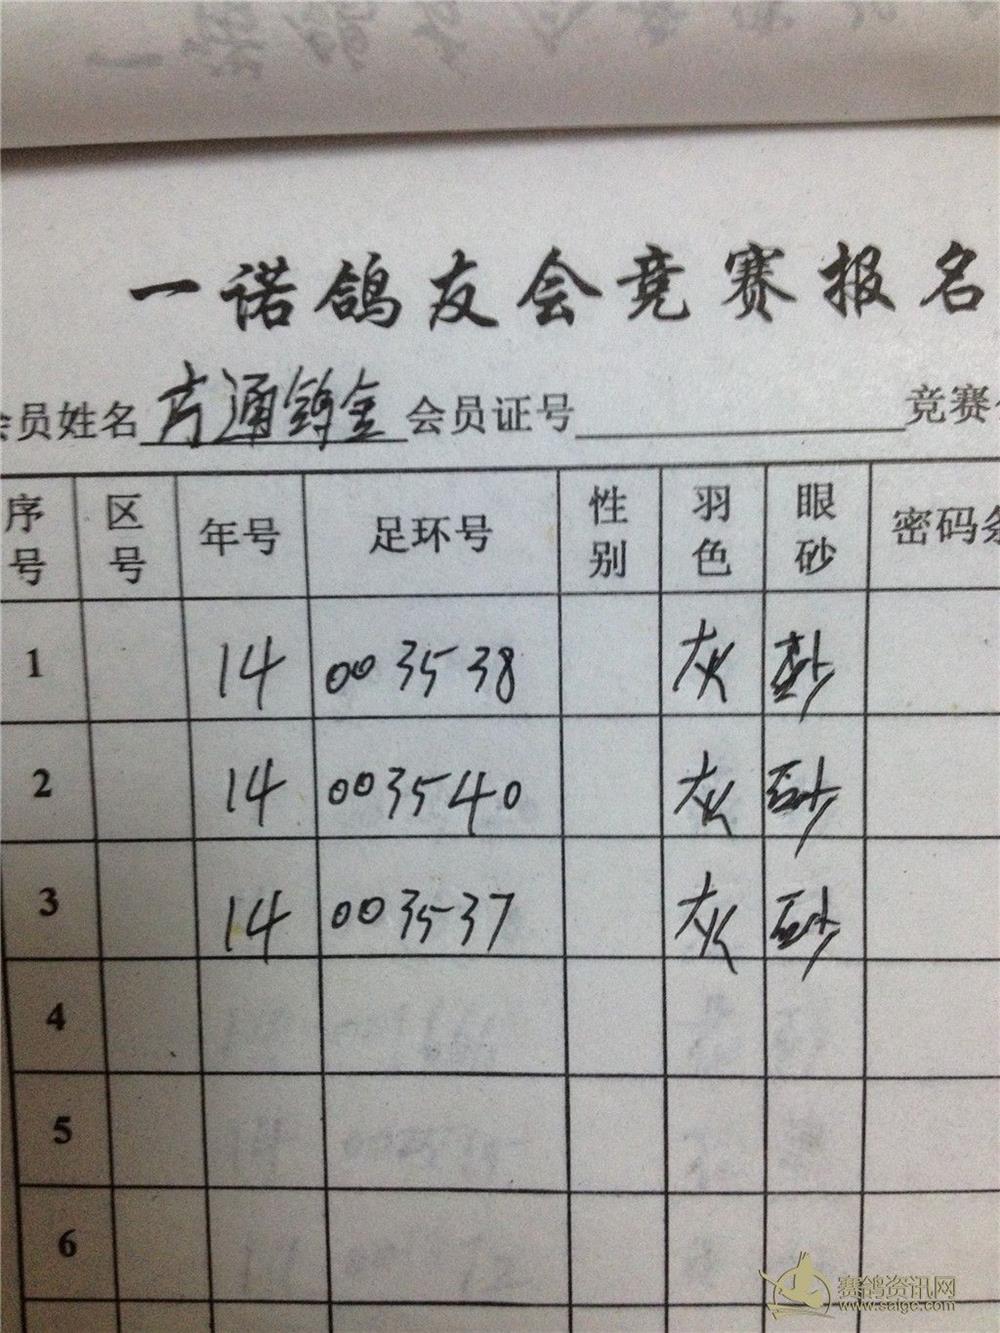 一诺鸽友会竞赛报名
会员姓名 方通鸽舍 会员证号 竞赛
序号 区号 年号 足环号 性别 羽色 眼砂 密码条
1 14 003538 灰 砂
2 14 003540 灰 砂
3 14 003537 灰 砂
4
5
6
赛鸽资讯网
www.saige.com